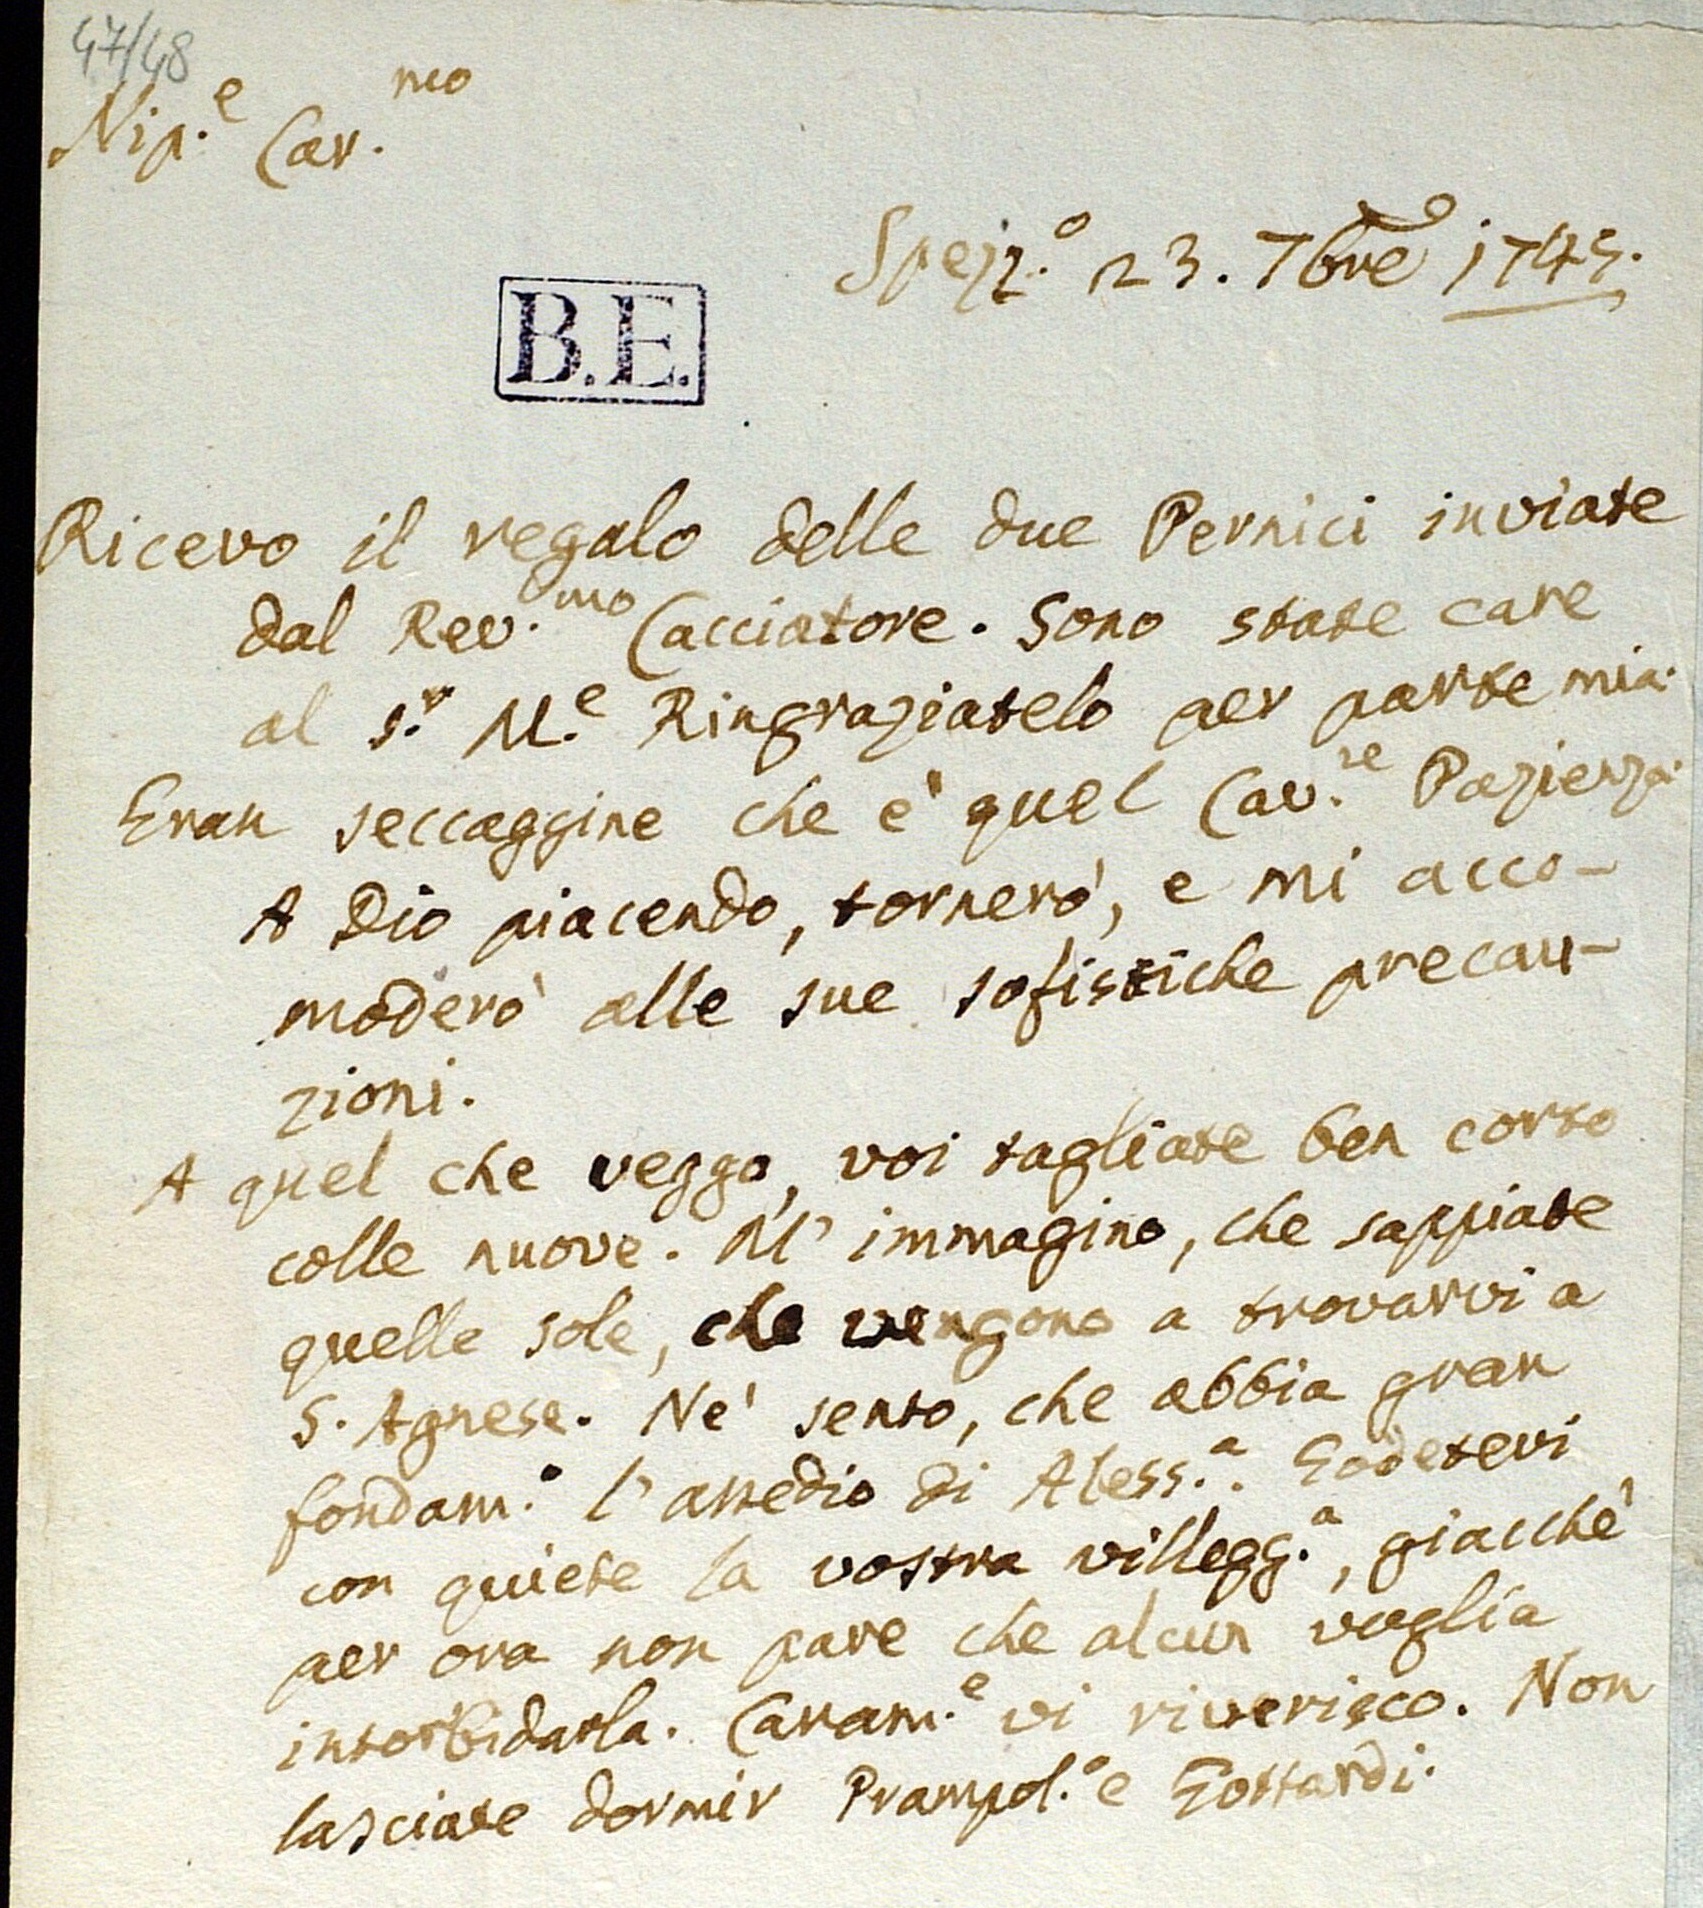 47/48
Nip.e Car.mo
Spezz.o 23. 7bre 1745.
B.E.
Ricevo il regalo delle due Pernici inviate
dal Rev.mo Cacciatore. Sono state care
al S.r M.e Ringraziatelo per parte mia.
Gran seccaggine che e' quel Cav.re Pazienza.
A Dio piacendo, tornerò, e mi acco-
moderò alle sue sofistiche precau-
zioni.
A quel che veggo, voi tagliate ben corto
colle nuove. M' immagino, che sappiate
quelle sole, che vengono a trovarvi a
S. Agnese. Ne' sento, che abbia gran
fondam.o l'assedio di Aless.a. Godetevi
con quiete la vostra villegg.a, giacchè
per ora non pare che alcun voglia
intorbidarla. Caram.e vi riverisco. Non
lasciate dormir Prampol.o e Gottardi.